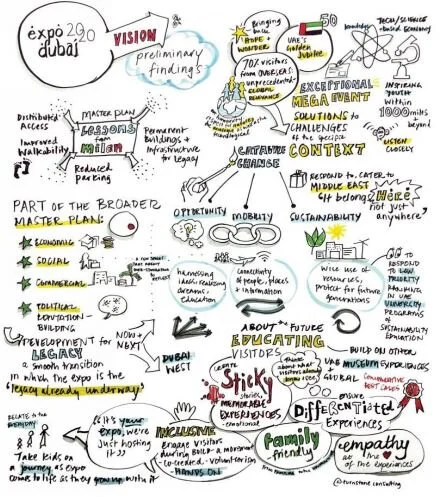 expo 2020
dubai
VISION
preliminary
findings
Bringing
back
HOPE +
WONDER
50
UAE's
Golden
Jubilee
70% visitors
from OVERSEAS:
unprecedented
GLOBAL
RELEVANCE
knowledge
TECH/SCIENCE
-based ECONOMY
INSPIRING
YOUTH
within
1000 miles
+ beyond
EXCEPTIONAL
MEGA EVENT
SOLUTIONS to
CHALLENGES
of the specific
CONTEXT
LISTEN
CLOSELY
CATALYZE
CHANGE
RESPOND to, CATER to
MIDDLE EAST
"It belongs HERE
not just
anywhere"
Distributed
Access
Improved
Walkability
MASTER PLAN
Lessons
from
Milan
Reduced
parking
Permanent
Buildings +
Infrastructure
for Legacy
PART OF THE BROADER
MASTER PLAN:
ECONOMIC
SOCIAL
COMMERCIAL
POLITICAL
REPUTATION-
BUILDING
OPPORTUNITY
MOBILITY
SUSTAINABILITY
harnessing
ideas, realizing
dreams,
education
connectivity
of people, places
+ information
wise use of
resources,
protect for future
generations
RESPOND
to LOW
PRIORITY
RANKING
IN UAE
UNIVERSITY
PROGRAMS
OF
SUSTAINABILITY
EDUCATION
NOW +
NEXT
DEVELOPMENT for
LEGACY
a smooth transition
in which the expo is the
"legacy already underway"
DUBAI
WEST
ABOUT the FUTURE
EDUCATING
VISITORS
Sticky
stories,
MEMORABLE
EXPERIENCES
-emotional
think
about what
visitors already
know
BUILD ON OTHER
UAE MUSEUM EXPERIENCES
+ GLOBAL
BEST CASES
ensure
DIFFERENTIATED
EXPERIENCES
RELATE to the
EVERYDAY
Take kids on
a journey as expo
comes to life as they grow up with it
"It's your
expo, we're
Just hosting
it"
INCLUSIVE
Engage visitors
during BUILD - a movement
-co-created - volunteerism
-HANDS ON
Family
-friendly
empathy
at the
of the experiences
@turnstone consulting